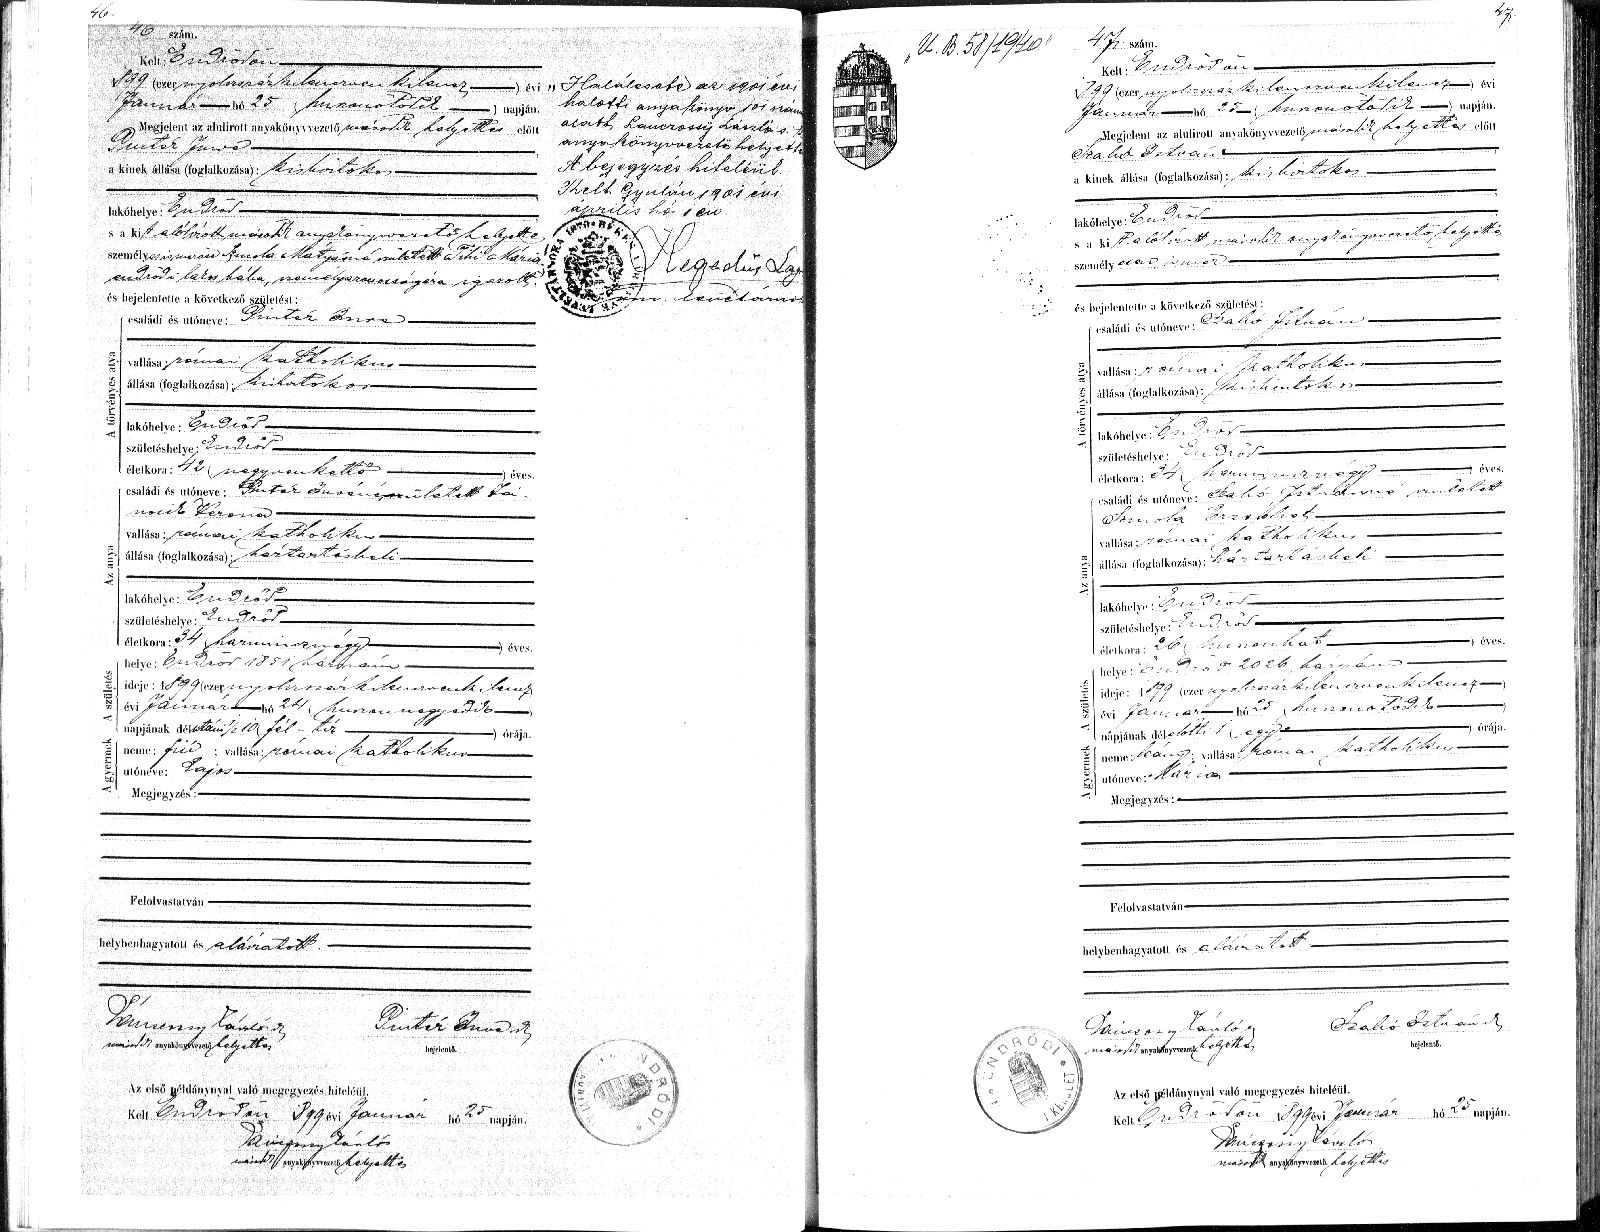 46.
46 szám.
Kelt: Endrődön
899 (ezer nyolczszázkilenczvenkilencz) évi
Január hó 25 (huszonötödik) napján.
Megjelent az alulirott anyakönyvvezető második helyettes előtt
Pintér Imre
a kinek állása (foglalkozása): kisbirtokos
lakóhelye: Endrőd
s a ki alólírott második anyakönyvvezető helyettes
személy Mátyásné született Tihi Mária
endrődi lakos bába, személyazonosságára igazolt
és bejelentette a következő születést:
A törvényes atya
családi és utóneve: Pintér Imre
vallása: római katholikus
állása (foglalkozása): kisbirtokos
lakóhelye: Endrőd
születéshelye: Endrőd
életkora: 42 (negyvenkettő) éves.
Az anya
családi és utóneve: Pintér Imréné született
Verona
vallása: római katholikus
állása (foglalkozása): háztartásbeli
lakóhelye: Endrőd
születéshelye: Endrőd
életkora: 34 (harmincznégy) éves.
A születés
helye: Endrőd 1851 házszám
ideje: 1899 (ezer nyolczszázkilenczvenkilencz
évi Január hó 24 (huszonnegyedik)
napjának délutáni ½10 (fél-tíz) órája.
A gyermek
neme: fiú; vallása: római katholikus
utóneve: Lajos
Megjegyzés:
Felolvastatván
helybenhagyatott és aláiratott.
második anyakönyvvezető helyettes
Pintér Imre
bejelentő.
Az első példánynyal való megegyezés hiteléül.
Kelt Endrődön 899 évi Január hó 25 napján.
második anyakönyvvezető helyettes
ENDRŐDI
„Halálesete az 1901 évi
halotti anyakönyv 101 szám
alatt László s. k.
anyakönyvvezető helyettes
A bejegyzés hiteléül.
Kelt Gyulán 1901 évi
április hó 1 én
Hegedüs
47.
„U. B. 58/1940"
47. szám.
Kelt: Endrődön
899 (ezer nyolczszázkilenczvenkilencz) évi
Január hó 25 (huszonötödik) napján.
Megjelent az alulirott anyakönyvvezető második helyettes előtt
Szabó István
a kinek állása (foglalkozása): kisbirtokos
lakóhelye: Endrőd
s a ki alólírott második anyakönyvvezető helyettes
személyesen ismer
és bejelentette a következő születést:
A törvényes atya
családi és utóneve: Szabó István
vallása: római katholikus
állása (foglalkozása): kisbirtokos
lakóhelye: Endrőd
születéshelye: Endrőd
életkora: 34 (harmincznégy) éves.
Az anya
családi és utóneve: Szabó Istvánné született
Erzsébet
vallása: római katholikus
állása (foglalkozása): háztartásbeli
lakóhelye: Endrőd
születéshelye: Endrőd
életkora: 26 (huszonhat) éves.
A születés
helye: Endrőd 2026 házszám
ideje: 1899 (ezer nyolczszázkilenczvenkilencz)
évi Január hó 25 (huszonötödik)
napjának délelőtti 1 (egy) órája.
A gyermek
neme: leány; vallása római katholikus
utóneve: Mária
Megjegyzés:
Felolvastatván
helybenhagyatott és aláiratott
második anyakönyvvezető helyettes
Szabó István
bejelentő.
Az első példánynyal való megegyezés hiteléül.
Kelt Endrődön 899 évi Január hó 25 napján.
második anyakönyvvezető helyettes
ENDRŐDI